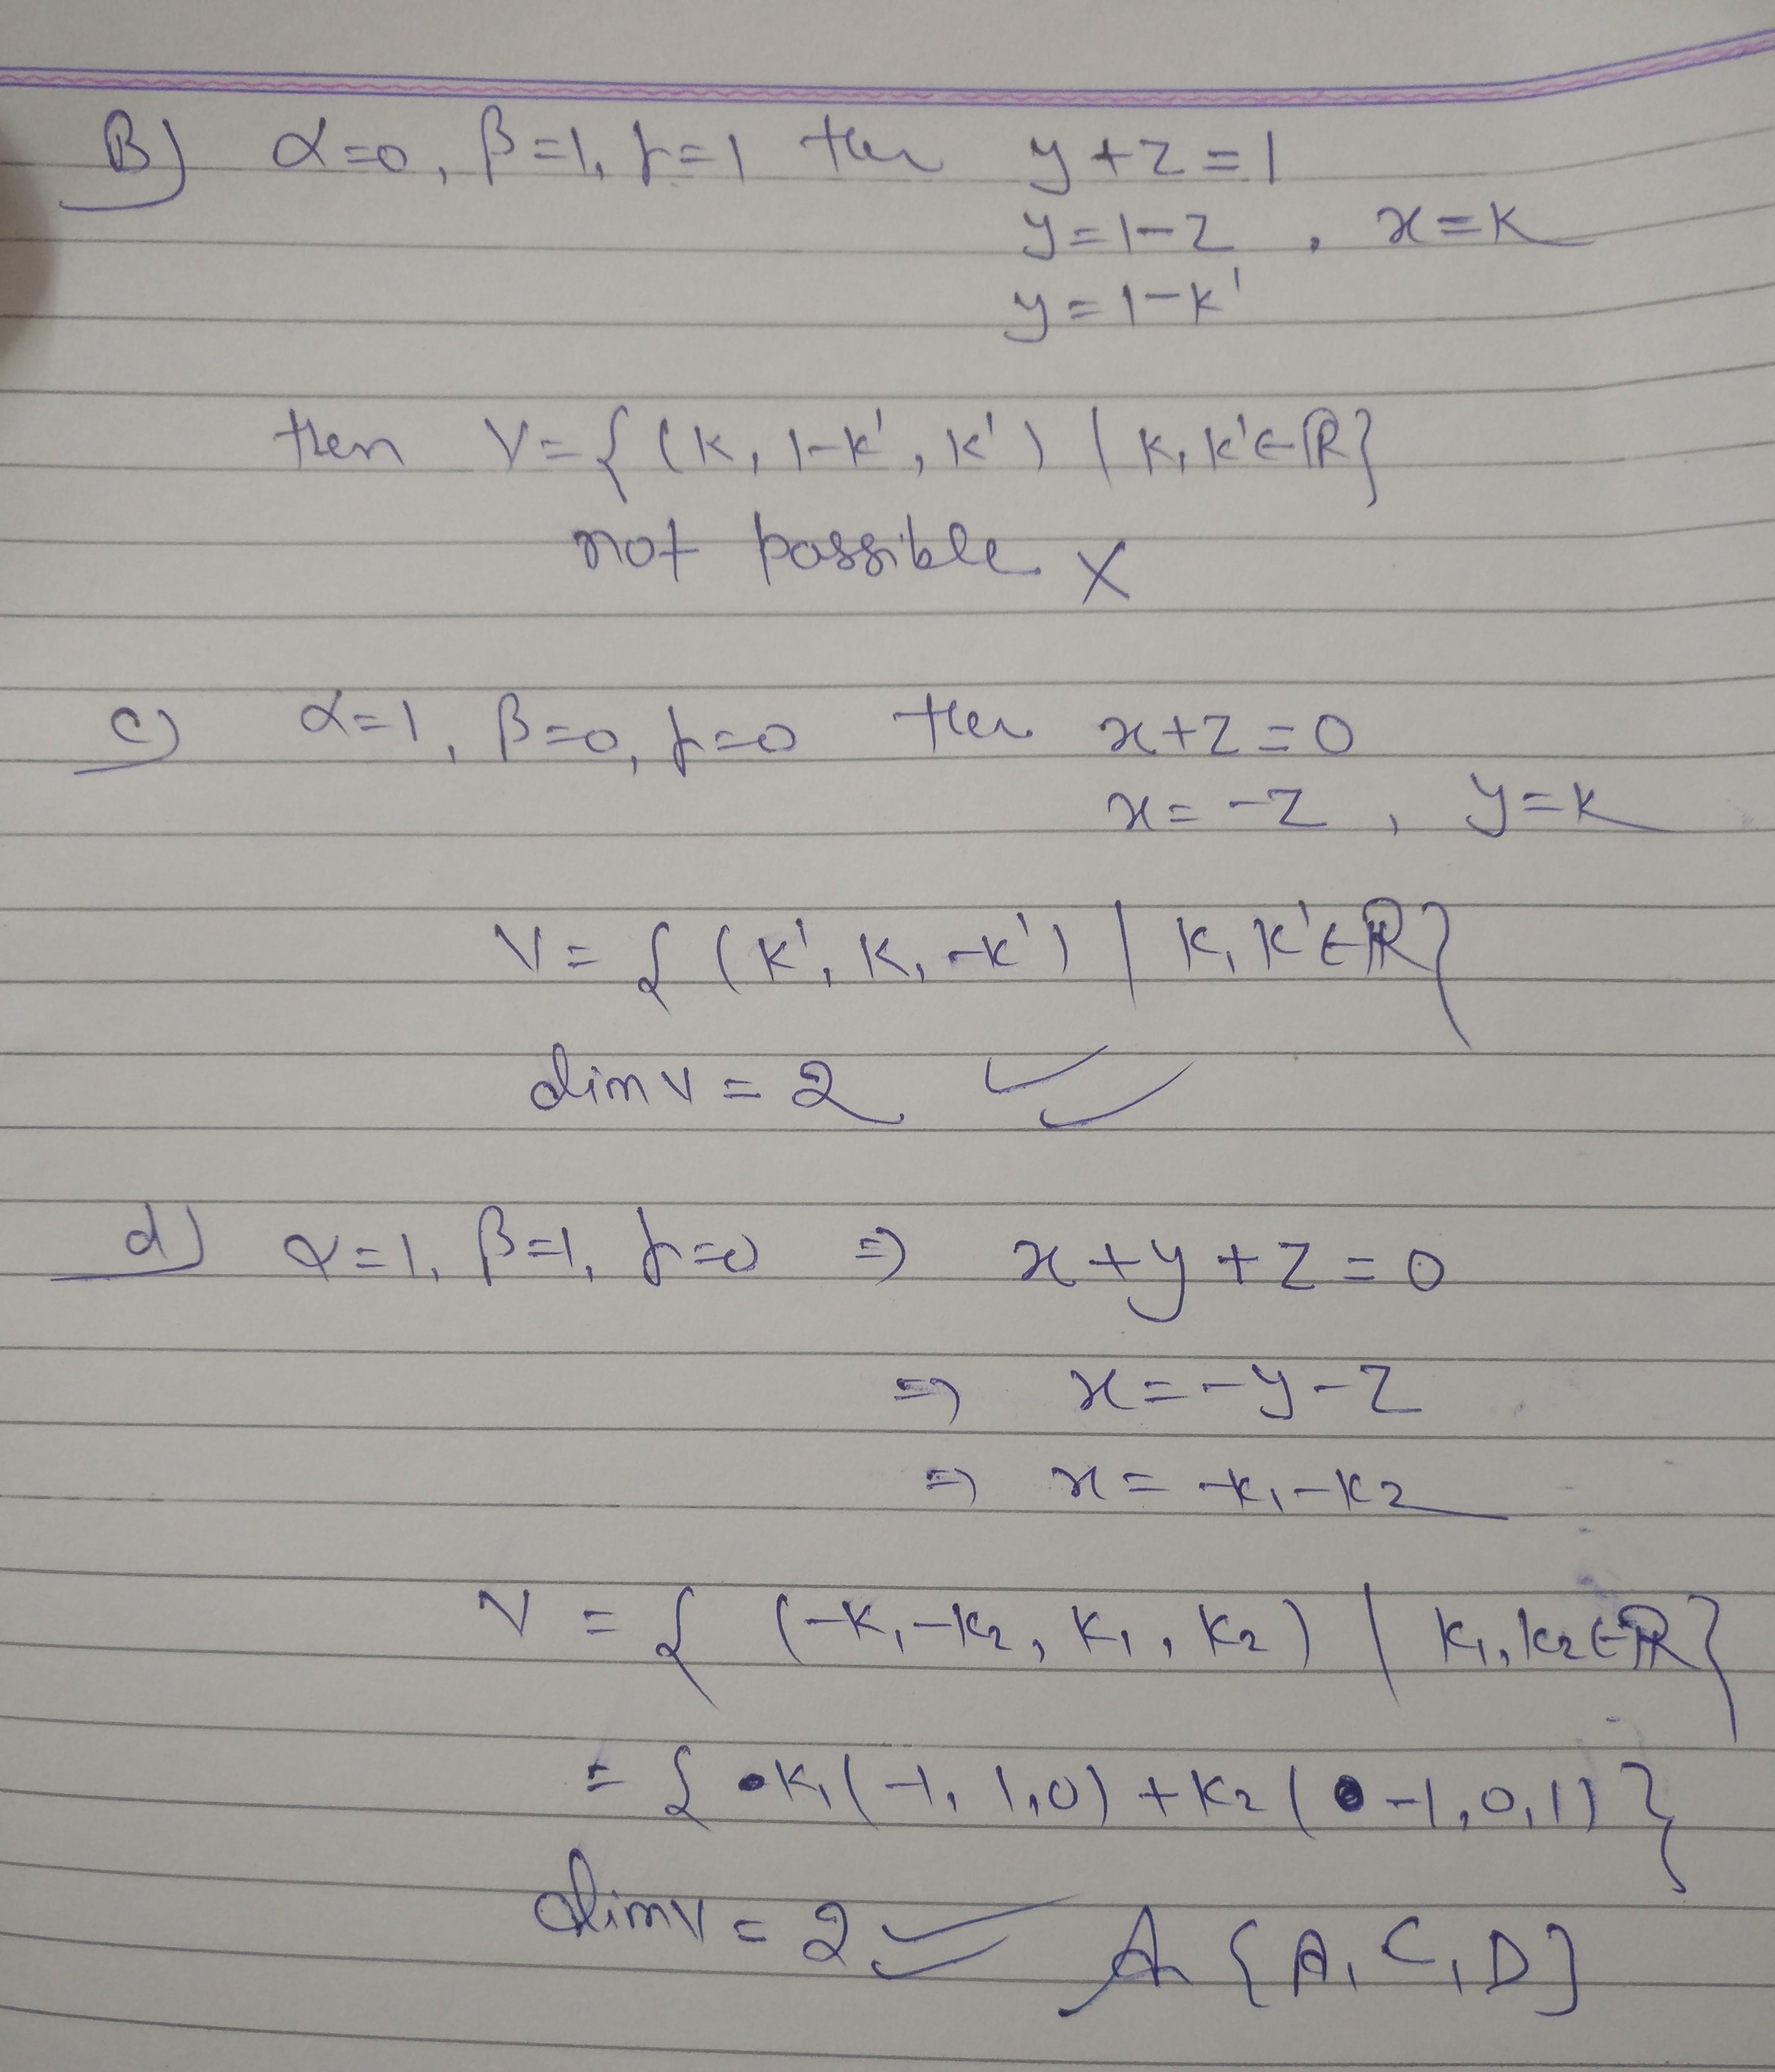 B) α=0, β=1, γ=1 then y+z=1
y=1-z , x=k
y=1-k'
then V={(k, 1-k', k') | k, k'∈ℝ}
not possible ×
c) α=1, β=0, γ=0 then x+z=0
x=-z , y=k
V={(k', k, -k') | k, k'∈ℝ}
dim V = 2 ✓✓
d) α=1, β=1, γ=0 ⇒ x+y+z=0
⇒ x=-y-z
⇒ x=-k₁-k₂
V = {(-k₁-k₂, k₁, k₂) | k₁, k₂∈ℝ}
= {k₁(-1, 1, 0) + k₂(-1, 0, 1)}
dim V = 2 ✓✓ A {A, C, D}